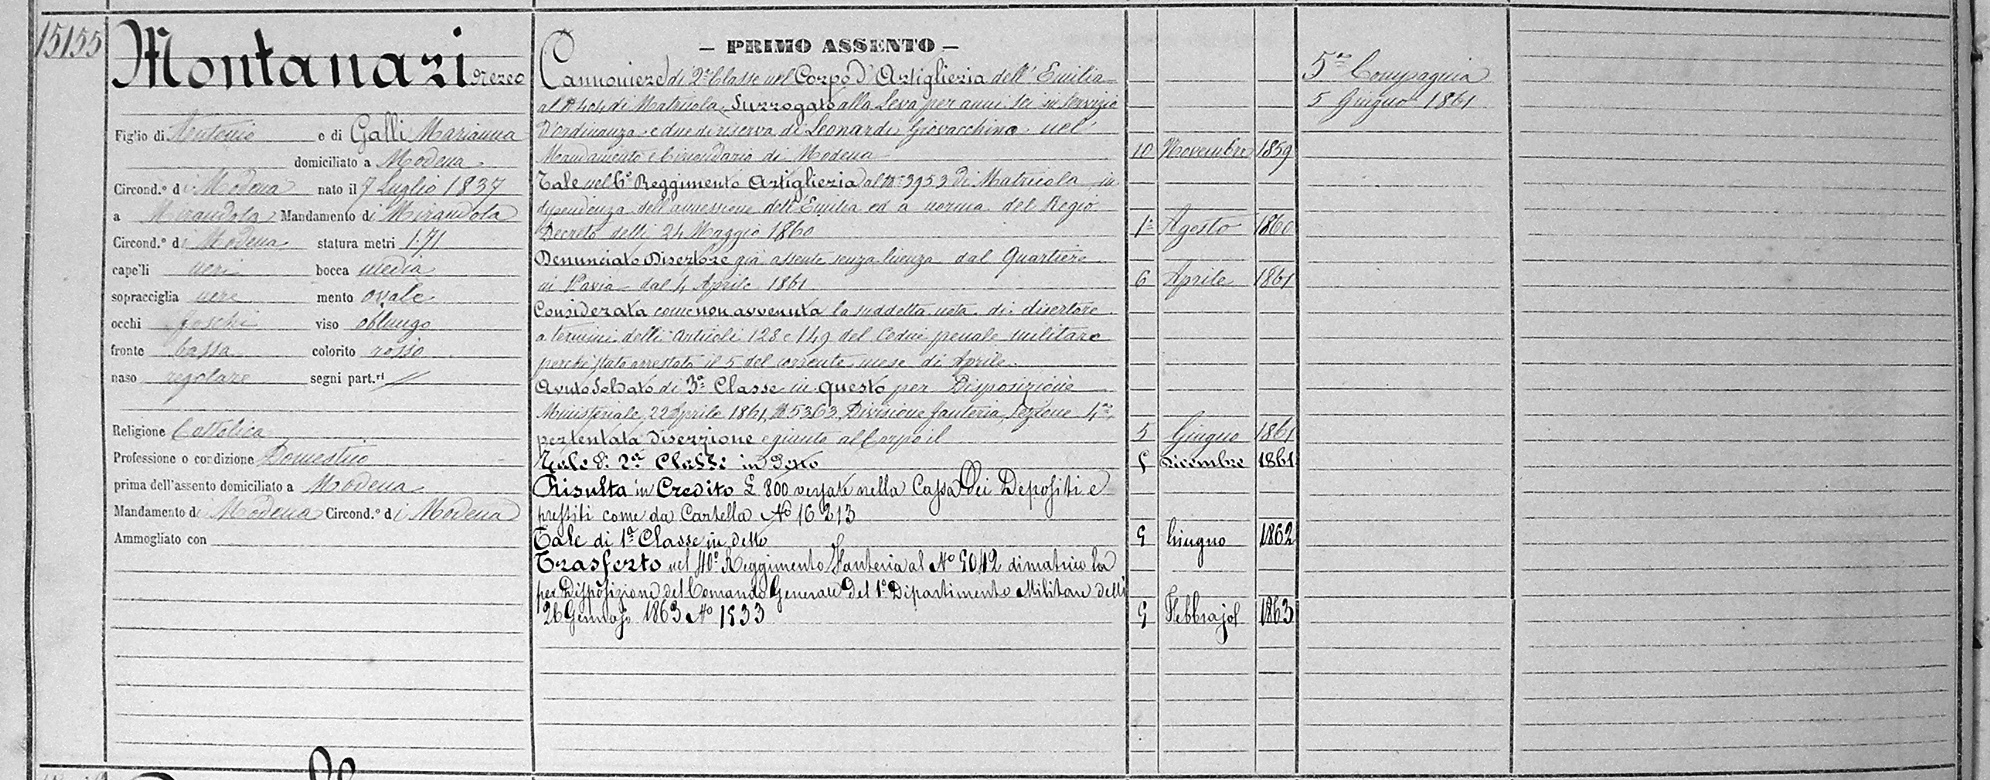 15155
Montanari Nereo
Figlio di Antonio e di Galli Marianna
domiciliato a Modena
Circond.° di Modena nato il 7 Luglio 1837
a Mirandola Mandamento di Mirandola
Circond.° di Modena statura metri 1.71
capelli neri bocca media
sopracciglia nere mento ovale
occhi foschi viso oblungo
fronte bassa colorito rosso
naso regolare segni part.ri //
Religione Cattolica
Professione o condizione Domestico
prima dell'assento domiciliato a Modena
Mandamento di Modena Circond.° di Modena
Ammogliato con
— PRIMO ASSENTO —
Cannoniere di 2a Classe nel Corpo d'Artiglieria dell'Emilia
al di Matricola, Surrogato alla Leva per anni sei in servizio
d'ordinanza e due di riserva di Leonardi Giovacchino nel
Mandamento e Circondario di Modena 10 Novembre 1859
Tale nel 6° Reggimento Artiglieria al N° 3953 di Matricola in
dipendenza dell'annessione dell'Emilia ed a norma del Regio
Decreto delli 24 Maggio 1860 1° Agosto 1860
Denunciato Disertore già assente senza licenza dal Quartiere
in Pavia dal 4 Aprile 1861 6 Aprile 1861
Considerata come non avvenuta la suddetta nota di disertore
a termini delli Articoli 128 e 149 del Codice penale militare
perché stato arrestato il 5 del corrente mese di Aprile
Avuto Soldato di 3a Classe in questo per Disposizione
Ministeriale 22 Aprile 1861, N. 5363, Divisione fanteria, Sezione 4a,
per tentata diserzione e giunto al Corpo il 5 Giugno 1861
Tale di 2a Classe in Detto 5 Dicembre 1861
Risulta in Credito £ 800 versate nella Cassa Dei Depositi e
prestiti come da Cartella No 16213
Tale di 1a Classe in detto 9 Giugno 1862
Trasferto nel 40° Reggimento Fanteria al No 5042 di matricola
per Disposizione del Comando Generale Del 1° Dipartimento Militare delli
26 Gennajo 1863 No 1533 9 Febbrajo 1863
5a Compagnia
5 Giugno 1861